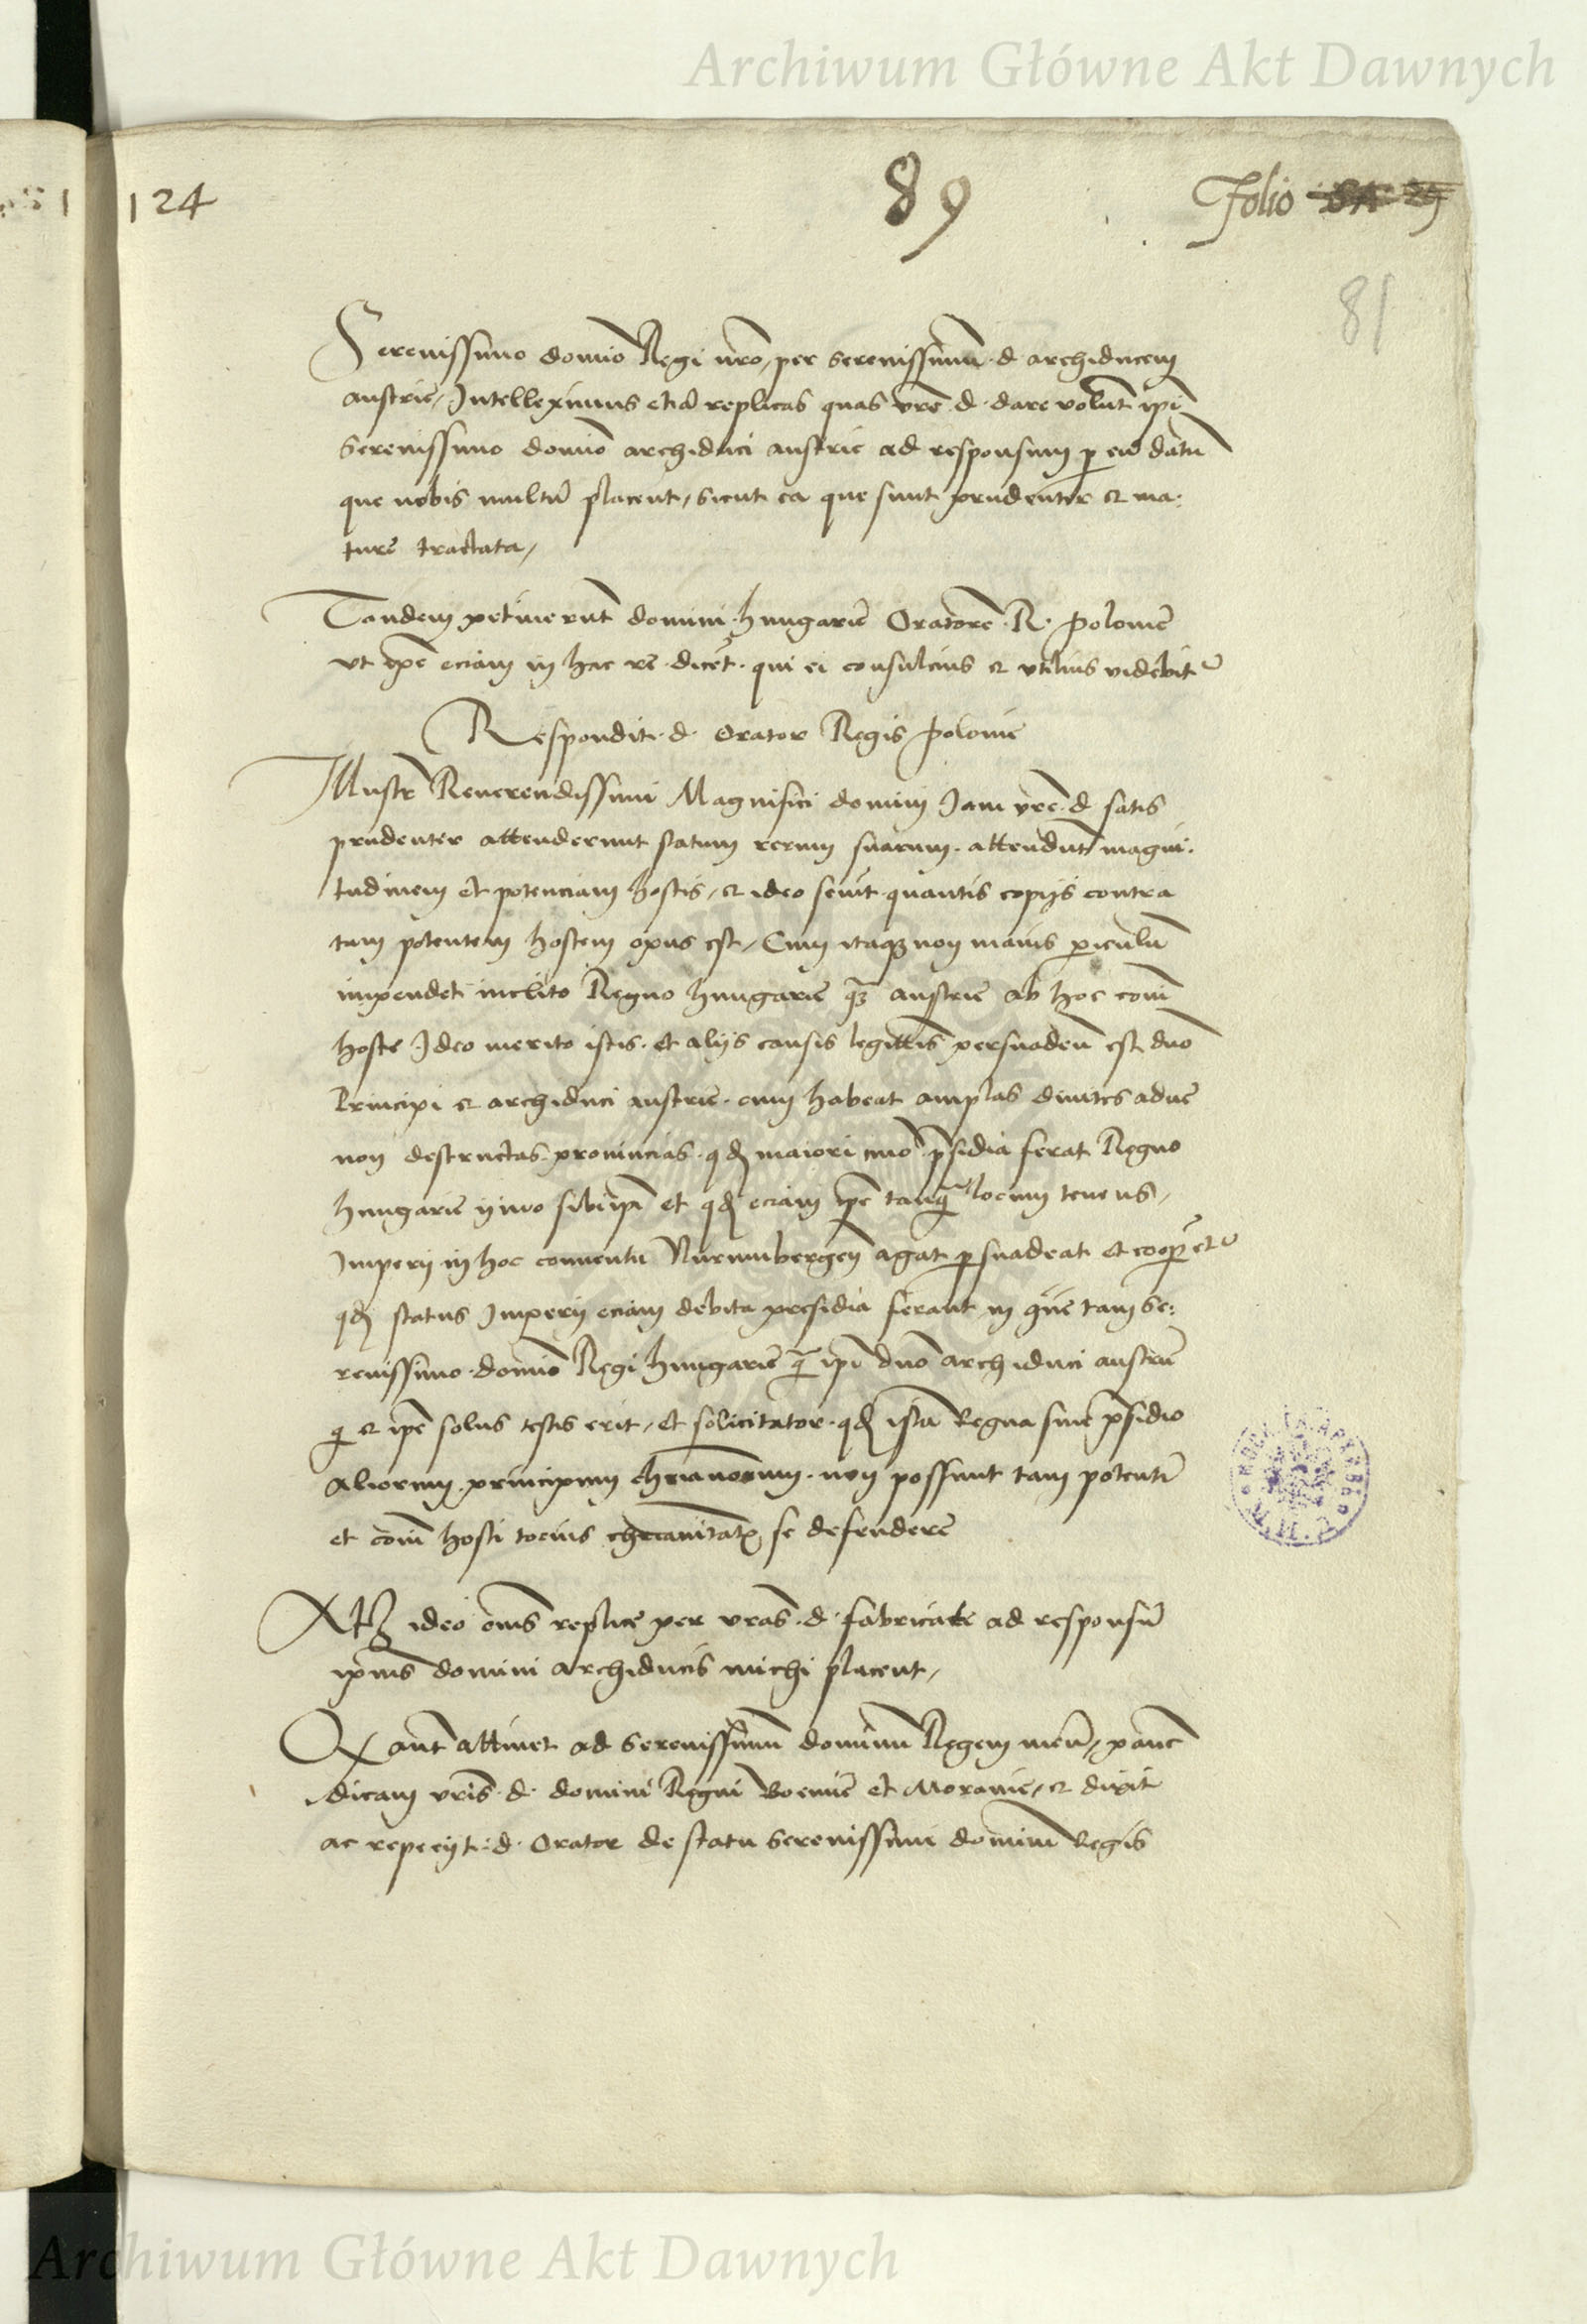 Archiwum Główne Akt Dawnych
124
89
Folio
81
Serenissimo domīo Regi nrō, per Serenissimū d. archiducem
austrie, Intelleximus etiā replicas quas vrē d. dare volūt ip̄i
Serenissimo domīo archiduci austrie ad responsum p eū datū
que nobis multū placent, sicut ea que sunt prudenter et ma:
ture tractata,
Tandem petiuerūt domini hungarie Oratorē R. polonie
vt ip̄e eciam in hac re dicēt. qui ei consulcius et vtilius videbit
Respondit d. Orator Regis polonie
Illustr̄ Reuerendissimi Magnifici domini Jam vrē d. satis
prudenter attenderunt statum rerum suarum. attendūt magni:
tudinem et potenciam hostis, et ideo sciūt quantis copijs contra
tam potentem hostem opus est, Cum itaq3 non maius piculū
impendet inclito Regno hungarie q̄3 austrie ab hoc com̄
hoste Ideo merito istis et alijs causis legittīs persuadeñ est dnō
Principi et archiduci austrie. cum habeat amplas diuites aduc
non destructas prouincias. qd maiori mō p̄sidia ferat Regno
hungarie ymo sibi ip̄i et qd eciam ip̄e tanq̄ locum tenens,
Imperij in hoc conuentu Nurmbergeñ agat psuadeat et coopet
qd status Imperij eciam debita presidia ferant tam Se:
renissimo domīo Regi hungarie q̄ ip̄i dnō archiduci austrie
q et ip̄e solus testis erit, et solicitator. qd ista Regna sine p̄sidio
aliorum principum chrianorum. non possunt tam potenti
et com̄ hosti tocius chrianitatis se defendere
Atq3 ideo om̄s replice per vras d. fabricate ad responsū
ip̄ius domini archiducis michi placent,
Q aut̄ attinet ad Serenissimū dominū Regem meū, pauc
dicam vrīs d. domini Regni Boemie et Moravie, et dixit
ac repecijt d. Orator de statu Serenissimi domini Regis
Archiwum Główne Akt Dawnych